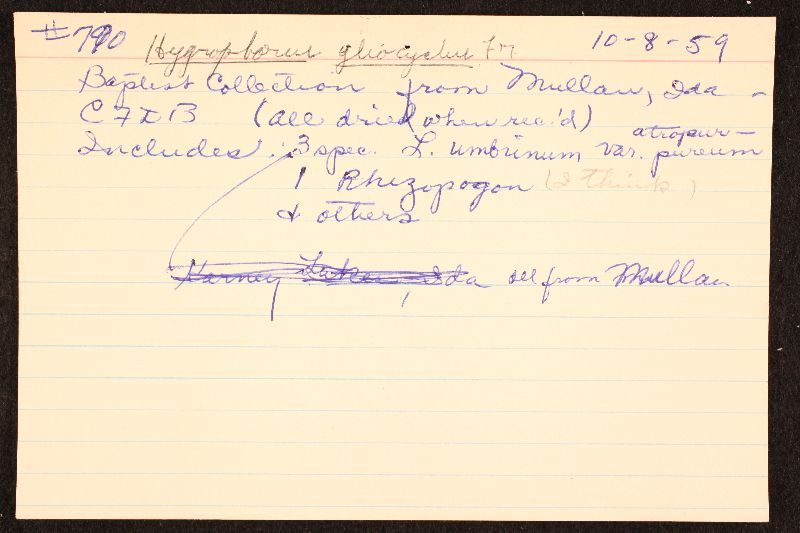 #790 Hygrophorus gliocyclus Fr 10-8-59
Baptist Collection from Mullan, Ida -
C 7 I B (all dried when rec'd)
Includes: 3 spec. L. umbrinum var. atropur-
pureum
1 Rhizopogon (I think)
& others
Harney Lake, Ida all from Mullan